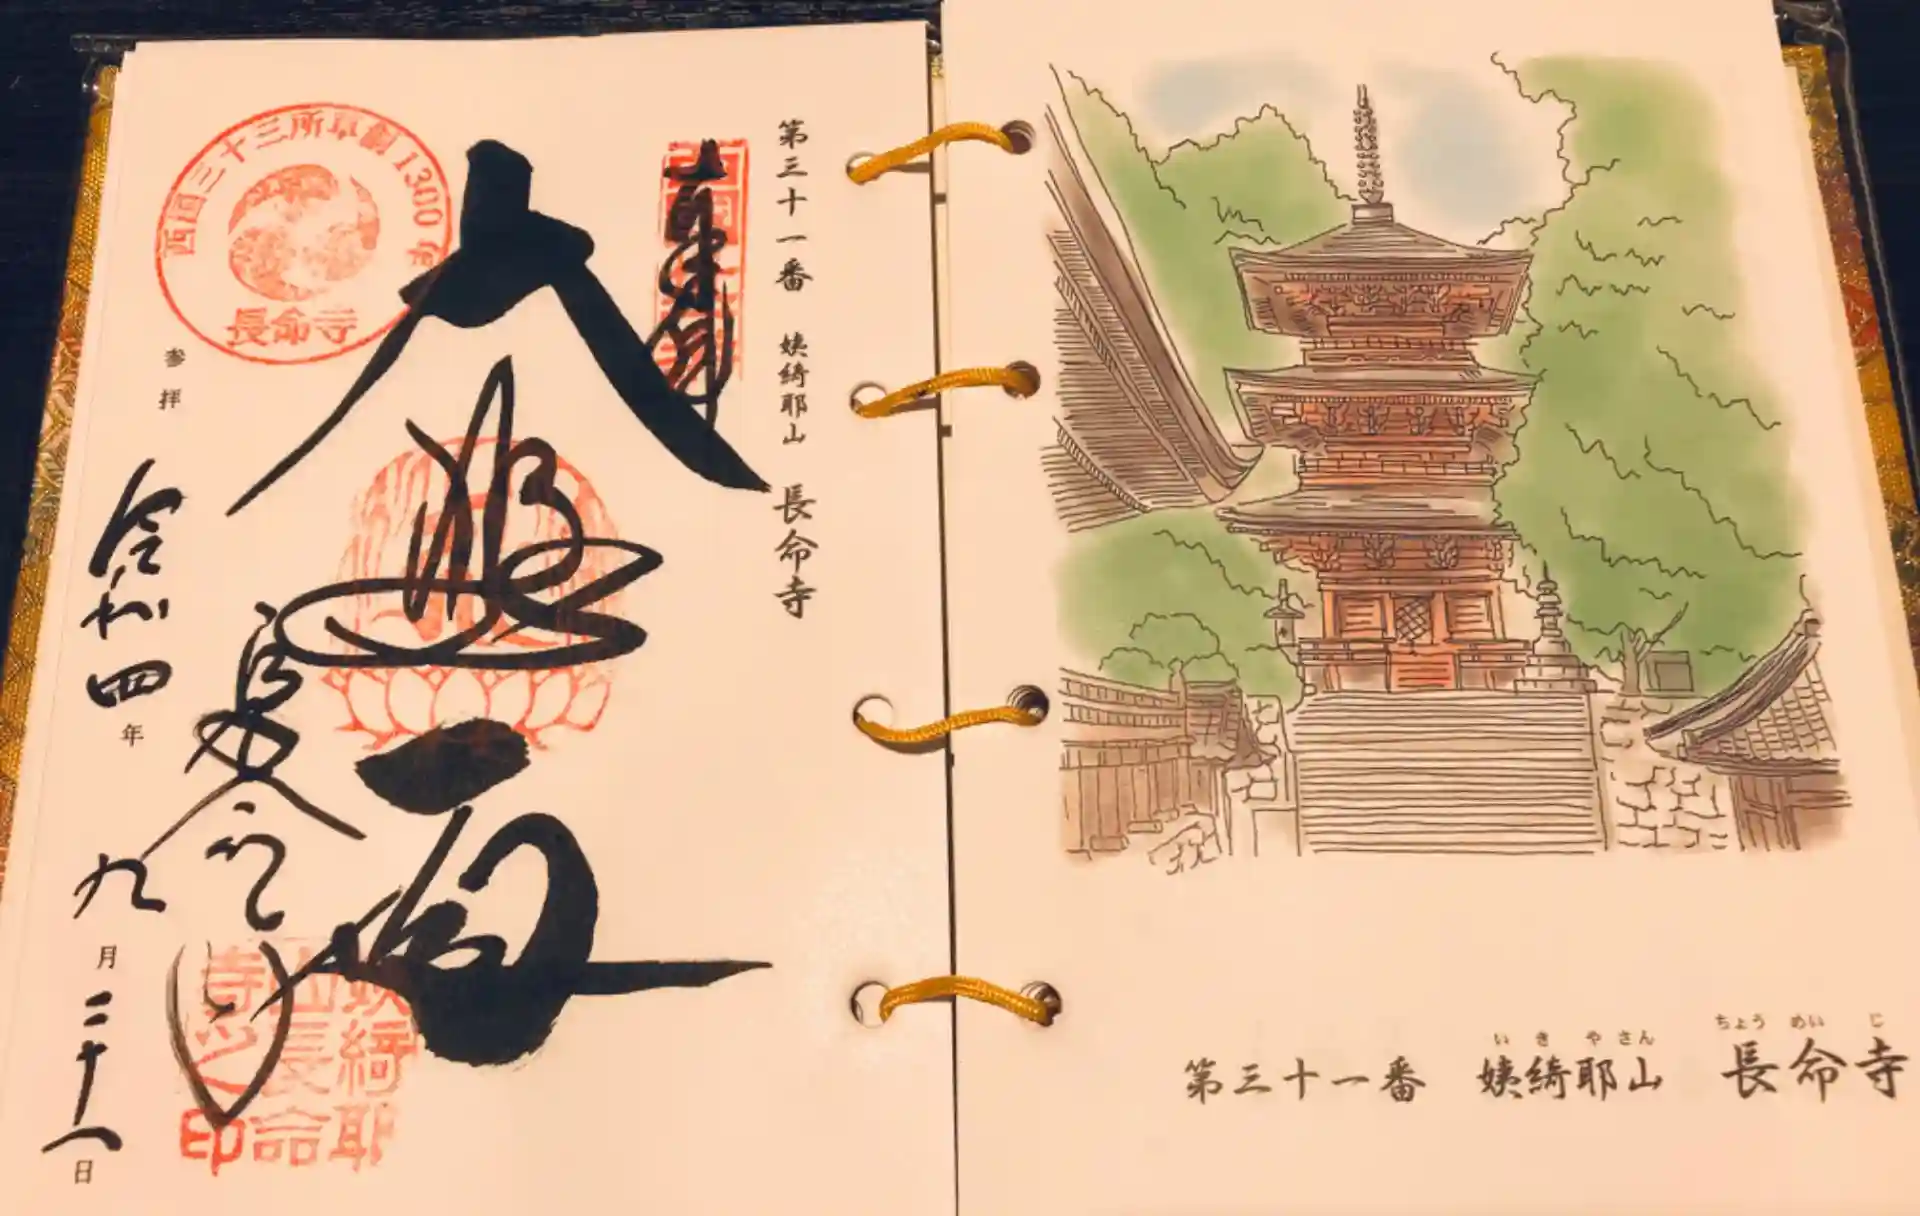 第三十一番 姨綺耶山 長命寺
奉拝
西国三十三所草創1300年
長命寺
長命寺
参拝 令和四年九月二十八日
姨綺耶
山長命
寺之印
いきやさん ちょうめいじ
第三十一番 姨綺耶山 長命寺